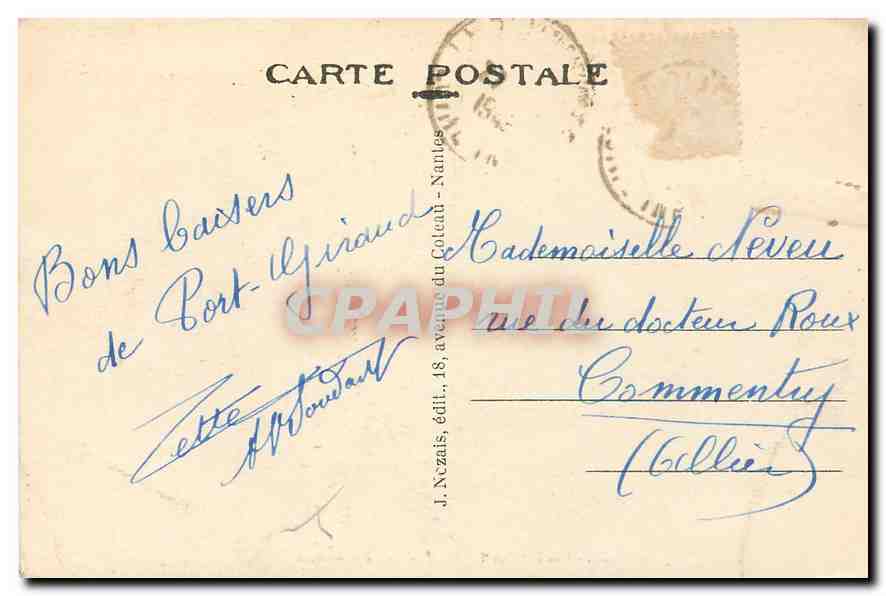 CARTE POSTALE
Bons baisers
de Port-Giraud
Zette
J. Nozais, édit., 18, avenue du Coteau - Nantes
Mademoiselle Neveu
rue du docteur Roux
Commentry
(Allier)
CPAPHIL